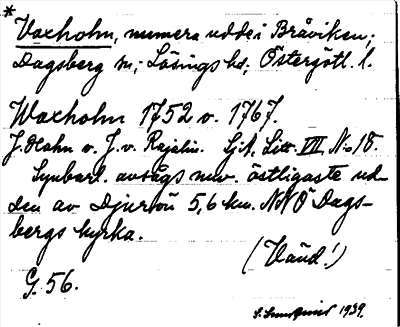 *
Vaxholm, numera udde i Bråviken,
Dagsberg sn, Lösings hd, Östergötl. l.
Waxholm 1752 o. 1767.
J. Hahn o. J. v. Rajalin. SjA. Litt. VII No 18.
Synbarl. avsågs nuv. östligaste ud-
den av Djurön 5,6 km. NNÖ Dags-
bergs kyrka.
(Vänd!)
G. 56.
1939.